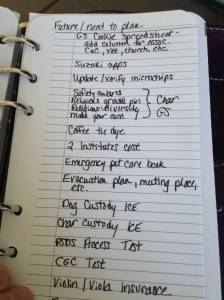 Future/need to plan
GS Cookie spreadsheet -
add column for assoc.
CoC, vet, church, etc.
Suzuki apps
Update/verify microchips
Safety award
Religions growth pin
Religious diversity
make your own
} Char
GS
Coffee tie dye
2 Institutes cost
Emergency pet care book
Evacuation plan, meeting place,
etc.
Dog Custody ICE
Char Custody ICE
Process Test
CGC Test
Violin/Viola insurance